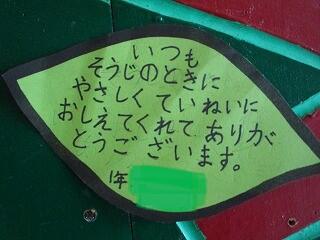 いつも
そうじのときに
やさしくていねいに
おしえてくれてありが
とうございます。
1年